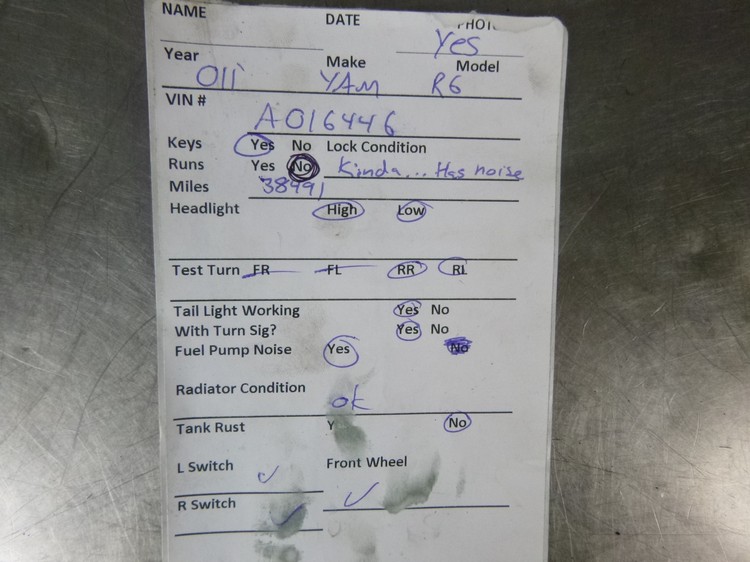 NAME DATE PHOTO
Yes
Year Make Model
011 YAM R6
VIN # A016446
Keys Yes No Lock Condition
Runs Yes No Kinda... Has noise
Miles 38991
Headlight High Low
Test Turn FR FL RR RL
Tail Light Working Yes No
With Turn Sig? Yes No
Fuel Pump Noise Yes No
Radiator Condition ok
Tank Rust Y No
L Switch ✓ Front Wheel ✓
R Switch ✓